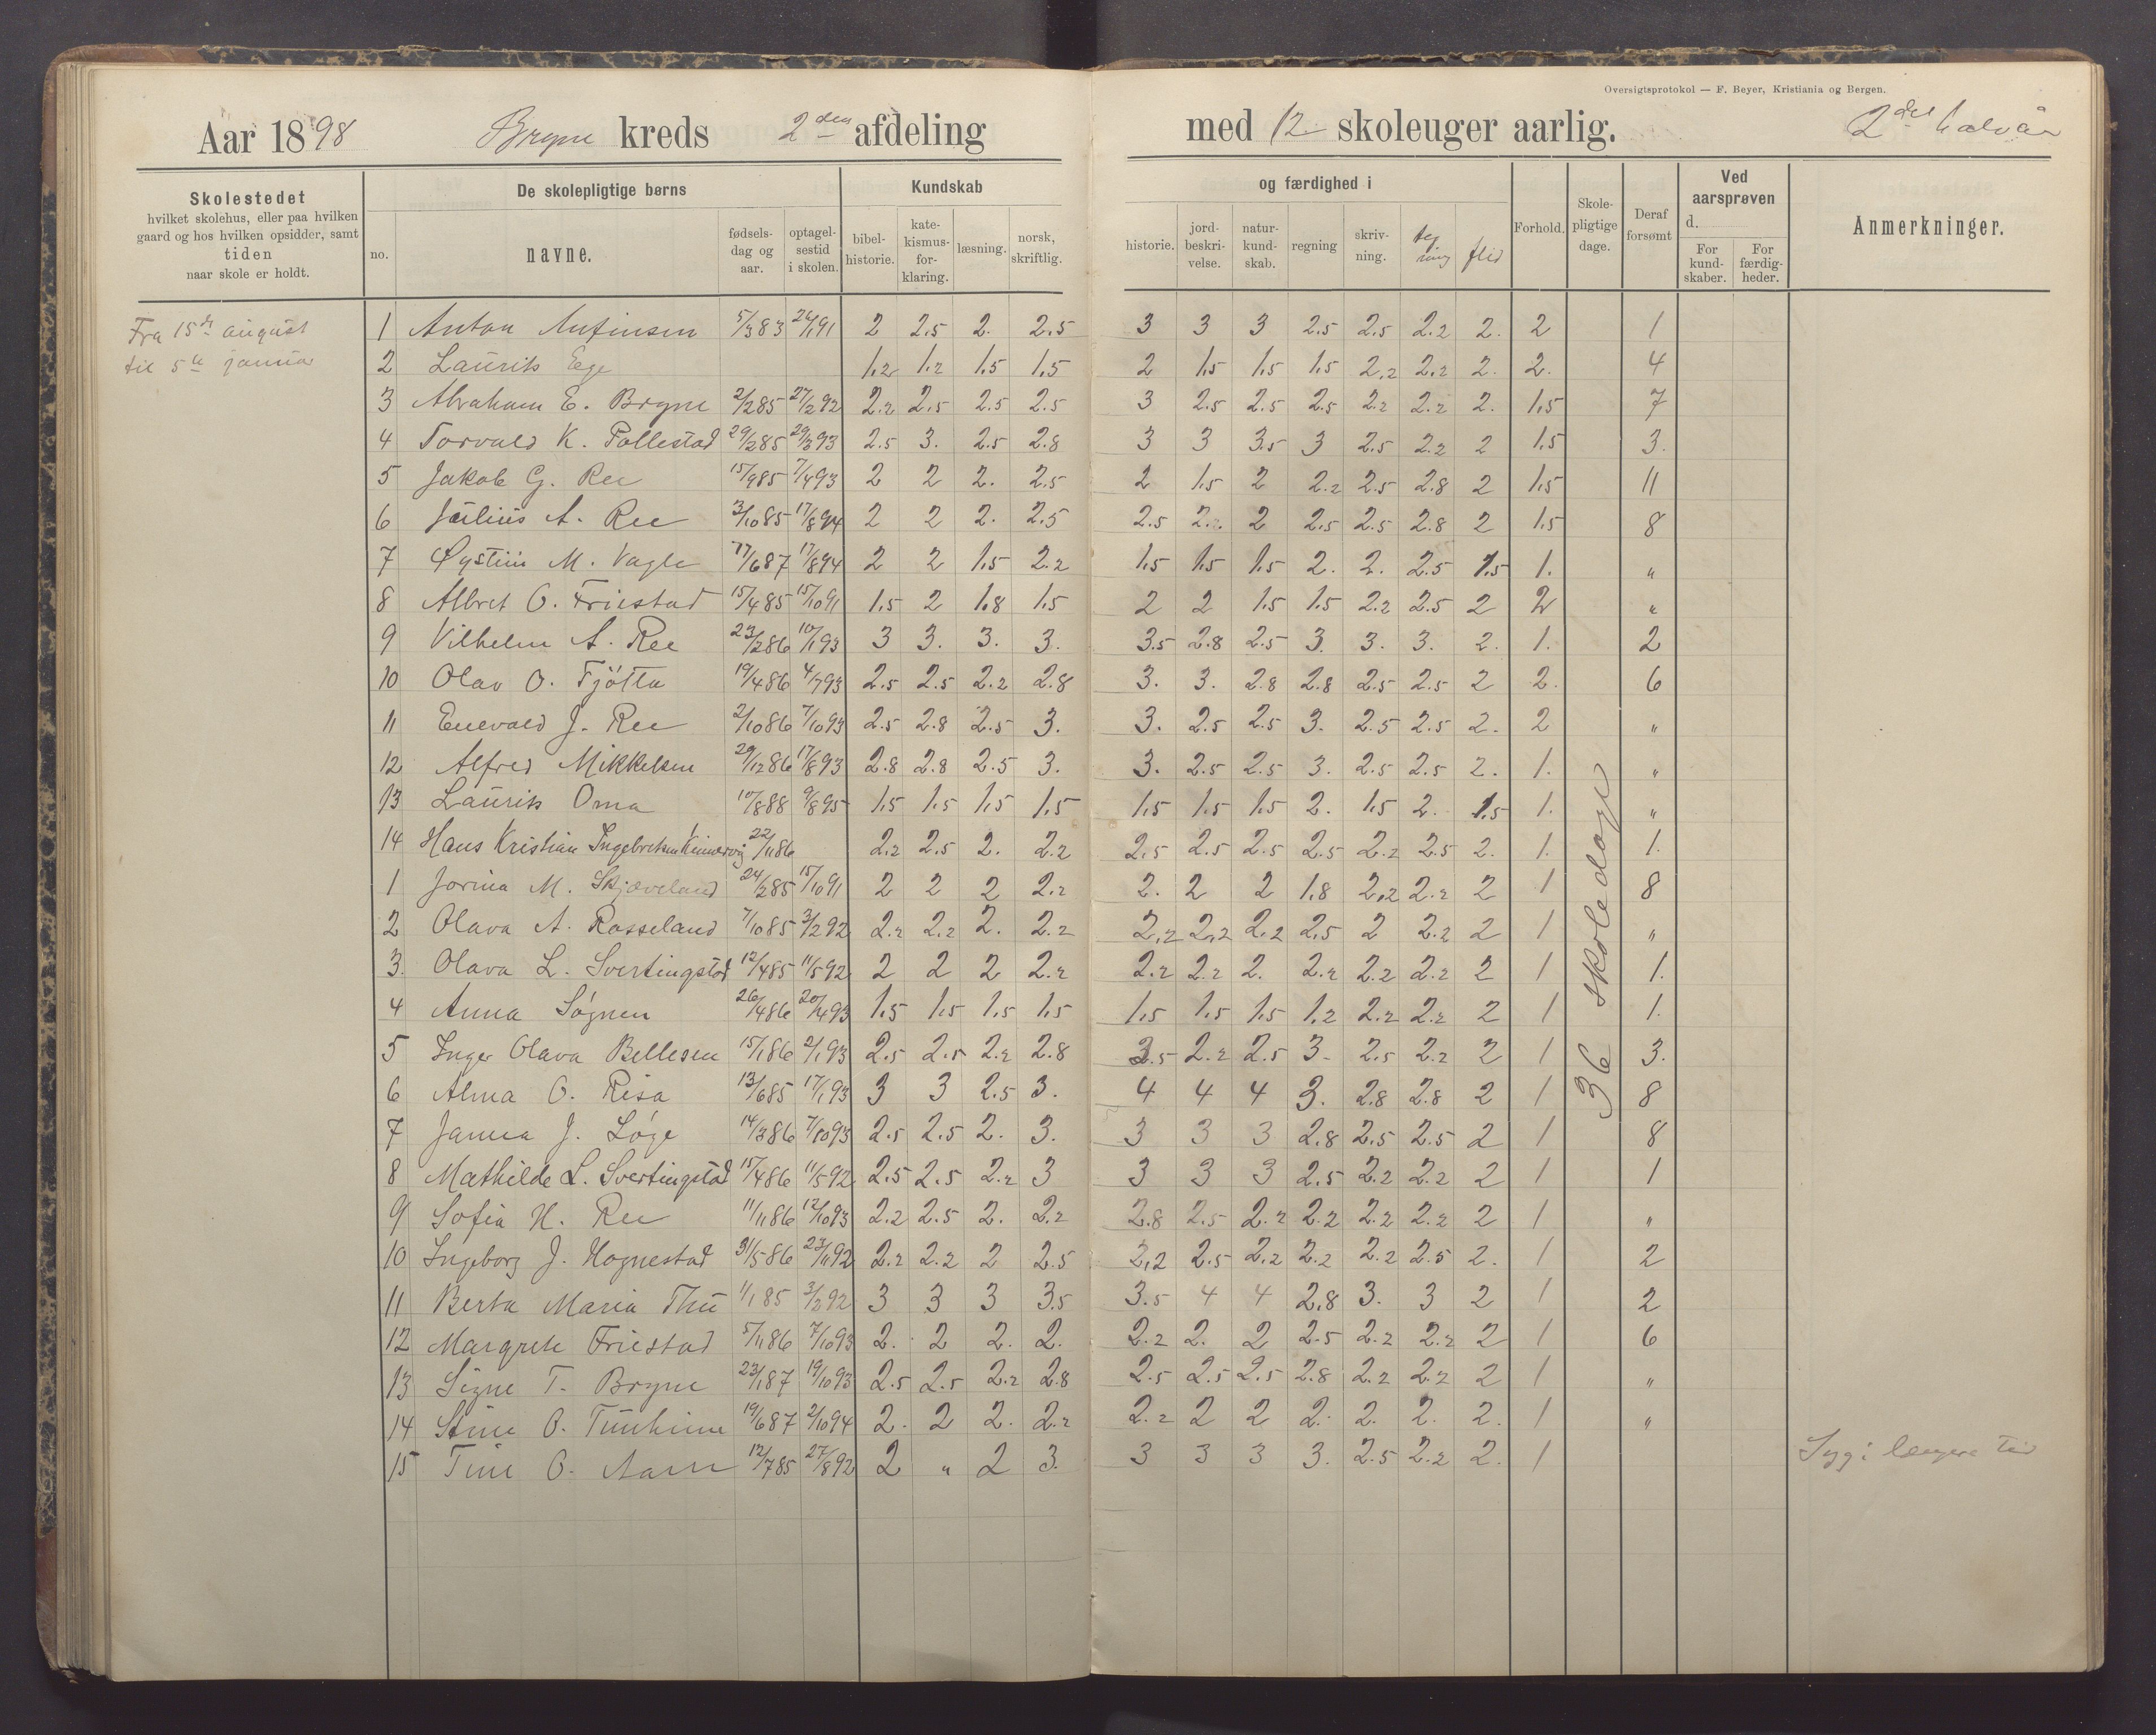 Oversigtsprotokol — F. Beyer, Kristiania og Bergen.
Aar 1898 Bryne kreds 2den afdeling med 12 skoleuger aarlig. 2det halvår
Skolestedet hvilket skolehus, eller paa hvilken gaard og hos hvilken opsidder, samt tiden naar skole er holdt.
De skolepligtige børns
no. navne. fødsels-dag og aar. optagel-sestid i skolen.
Kundskab og færdighed i
bibel-historie. kate-kismus-for-klaring. læsning. norsk, skriftlig. historie. jord-beskri-velse. natur-kund-skab. regning skriv-ning. teg ning flid
Forhold. Skole-pligtige dage. Deraf forsømt
Ved aarsprøven d. For kund-skaber. For færdig-heder.
Anmerkninger.
Fra 15de august
til 5te januar
1 Anton Anfinsen 5/3 83 26/1 91 2 2,5 2. 2,5 3 3 3 2.5 2.5 2.2 2. 2 1
2 Laurits Ege 1,2 1,2 1,5 1,5 2 1,5 1,5 1,5 2,2 2.2 2. 2. 4
3 Abraham E. Bryne 2/2 85 27/2 92 2.2 2.5 2.5 2.5 3 2.5 2.5 2.5 2.2 2.2 2. 1,5 7
4 Torvald K. Pollestad 29/2 85 29/3 93 2.5 3. 2.5 2.8 3 3 3.5 3 2.5 2.2 2 1,5 3.
5 Jakob G. Ree 15/9 85 7/4 93 2 2 2. 2.5 2 1,5 2 2.2 2.5 2.8 2 1,5 11
6 Julius A. Ree 3/10 85 17/8 94 2 2 2. 2.5 2.5 2.2 2 2,5 2.5 2.8 2 1,5 8
7 Øystein M. Vagle 17/6 87 17/8 94 2 2 1,5 2.2 1,5 1,5 1,5 2. 2. 2.5 1,5 1. "
8 Albret O. Friestad 15/4 85 15/10 91 1,5 2 1,8 1,5 2 2 1,5 1,5 2.2 2.5 2 2 "
9 Vilhelm A. Ree 23/2 86 10/1 93 3 3. 3. 3. 3.5 2.8 2.5 3. 3. 3. 2. 1. 2
10 Olav O. Tjötta 19/4 86 4/7 93 2.5 2.5 2.2 2.8 3. 3. 2.8 2.8 2.5 2.5 2 2. 6
11 Enevald J. Ree 2/10 86 7/10 93 2.5 2.8 2.5 3. 3. 2.5 2.5 3. 2.5 2.5 2. 2 "
12 Alfred Mikkelsen 29/12 86 17/8 93 2.8 2.8 2.5 3. 3. 2.5 2.5 3. 2.5 2.5 2. 1. "
13 Laurits Oma 10/8 88 9/8 95 1,5 1,5 1,5 1,5 1,5 1,5 1,5 2. 1,5 2. 1,5 1. "
14 Hans Kristian Ingebretsen Kinnarvig 22/11 86 2.2 2.5 2. 2.2 2,5 2.5 2.5 2.5 2.2 2.5 2. 1. 1.
1 Jorina M. Skjæveland 24/2 85 15/10 91 2 2 2 2.2 2. 2 2 1.8 2,2 2.2 2 1 8
2 Olava A. Rosseland 7/10 85 3/2 92 2.2 2.2 2. 2.2 2.2 2,2 2,2 2,5 2 2.2 2 1 "
3. Olava L. Svertingstad 12/4 85 11/5 92 2 2 2 2.2 2.2 2.2 2. 2.2 2.2 2.2 2 1 1.
4 Anna Sógnen 26/4 86 20/4 93 1,5 1,5 1,5 1,5 1,5 1,5 1,5 1,2 2.2 2.2 2 1 1.
5 Inger Olava Bellesen 15/1 86 2/1 93 2.5 2.5 2.2 2.8 3.5 2.2 2.5 3- 2.5 2.2 2 1 3.
6 Alma O. Risa 13/6 85 17/1 93 3 3 2.5 3. 4 4 4 3. 2.8 2.8 2 1 8
7 Janna J. Lóge 14/3 86 7/10 93 2.5 2.5 2. 3. 3 3 3 2.8 2.5 2.5 2 1 8
8 Mathilde L. Svertingstad 15/4 86 11/5 92 2.5 2.5 2.2 3 3 3 3 2.5 2.2 2.2 2 1 1
9 Sofia H. Ree 11/11 86 12/10 93 2.2 2.5 2. 2.2 2.8 2.5 2.2 2.2 2.2 2.2 2 1 "
10 Ingeborg J. Hognestad 31/5 86 23/11 92 2.2 2.2 2 2.5 2,2 2.5 2,2 2.2 2.2 2.5 2. 1 2
11 Berta Maria Thu 1/1 85 3/2 92 3 3 3 3.5 3.5 4 4 2.8 3. 3 2 1 2
12 Margrete Friestad 5/11 86 7/10 93 2. 2 2. 2. 2.2 2. 2 2.5 2.2 2.2 2 1 6
13 Signe T. Bryne 23/1 87 19/10 93 2.5 2.5 2.2 2.8 2.5 2.5 2.5 2.8 2.2 2.2 2 1 "
14 Stine O. Tunheim 19/6 87 2/10 94 2. 2 2. 2.2 2.2 2 2 2. 2. 2. 2. 1 "
15 Tine O. 12/7 85 27/8 92 2 " 2 3. 3 3 3 3. 2.5 2.2 2. 1 Syg i længere tid
36 skoledage